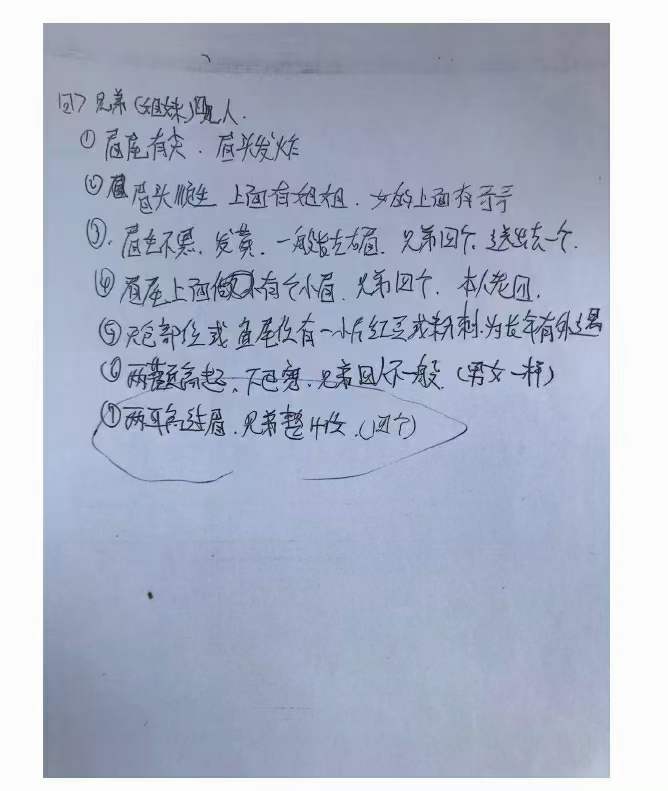 四> 兄弟(姐妹)四人.
① 眉尾有尖. 眉头发炸
② 眉头顺生 上面有姐姐. 女的上面有哥哥
③. 眉生不黑. 发黄. 一般指左右眉. 兄弟四个. 送出去一个.
④ 眉尾上面有个小眉. 兄弟四个. 本人老四.
⑤ 部位或鱼尾位有一小片红豆或粉刺. 为长年有外遇
⑥ 两颧高起、下巴窄. 兄弟四人不一般. (男女一样)
⑦ 两耳高过眉. 兄弟整 (四个)